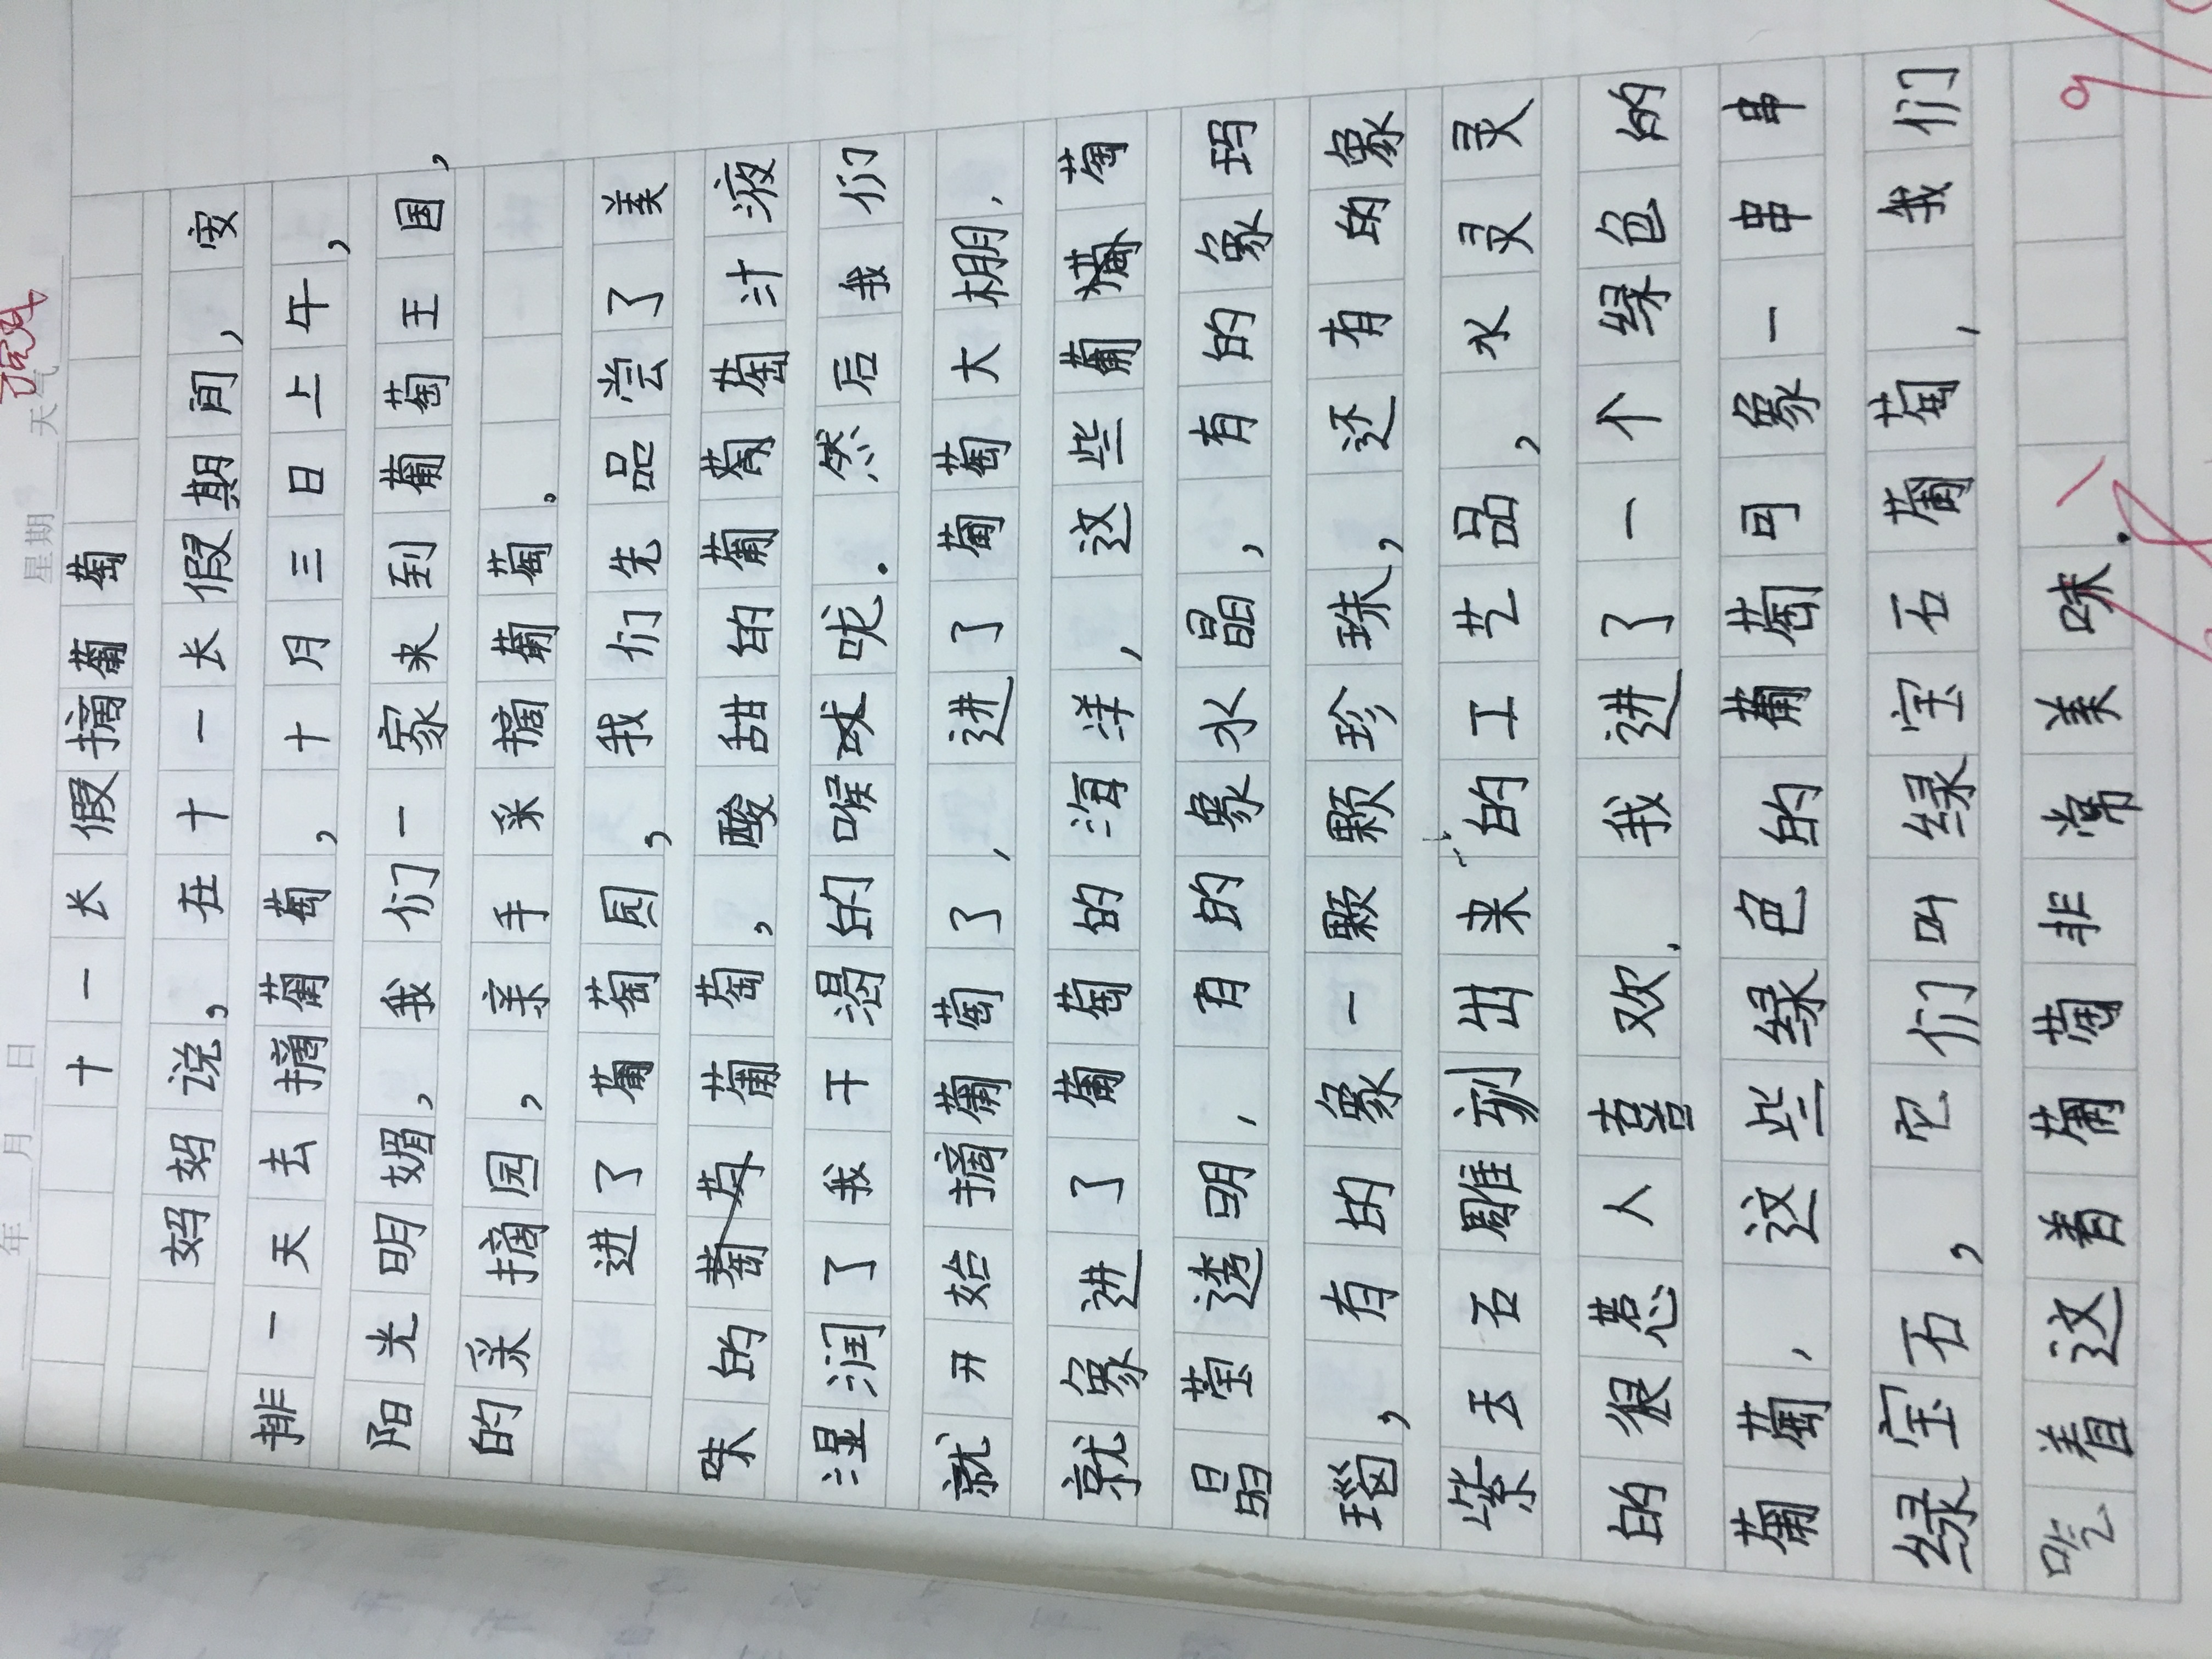 年 月 日 星期 天气
十一长假摘葡萄
妈妈说，在十一长假期间，安
排一天去摘葡萄，十月三日上午，
阳光明媚，我们一家来到葡萄王国，
的采摘园，亲手采摘葡萄。
进了葡萄园，我们先品尝了美
味的葡萄，酸甜的葡萄葡萄汁液
湿润了我干渴的喉咙．然后我们
就开始摘葡萄了，进了葡萄大棚，
就象进了葡萄的海洋，这些葡萄
晶莹透明，有的象水晶，有的象玛
瑙，有的象一颗颗珍珠，还有的象
紫玉石雕刻出来的工艺品，水灵灵
的很惹人喜欢．我进了一个绿色的
葡萄，这些绿色的葡萄可象一串串
绿宝石，它们叫绿宝石葡萄，我们
吃着这着葡萄非常美味．